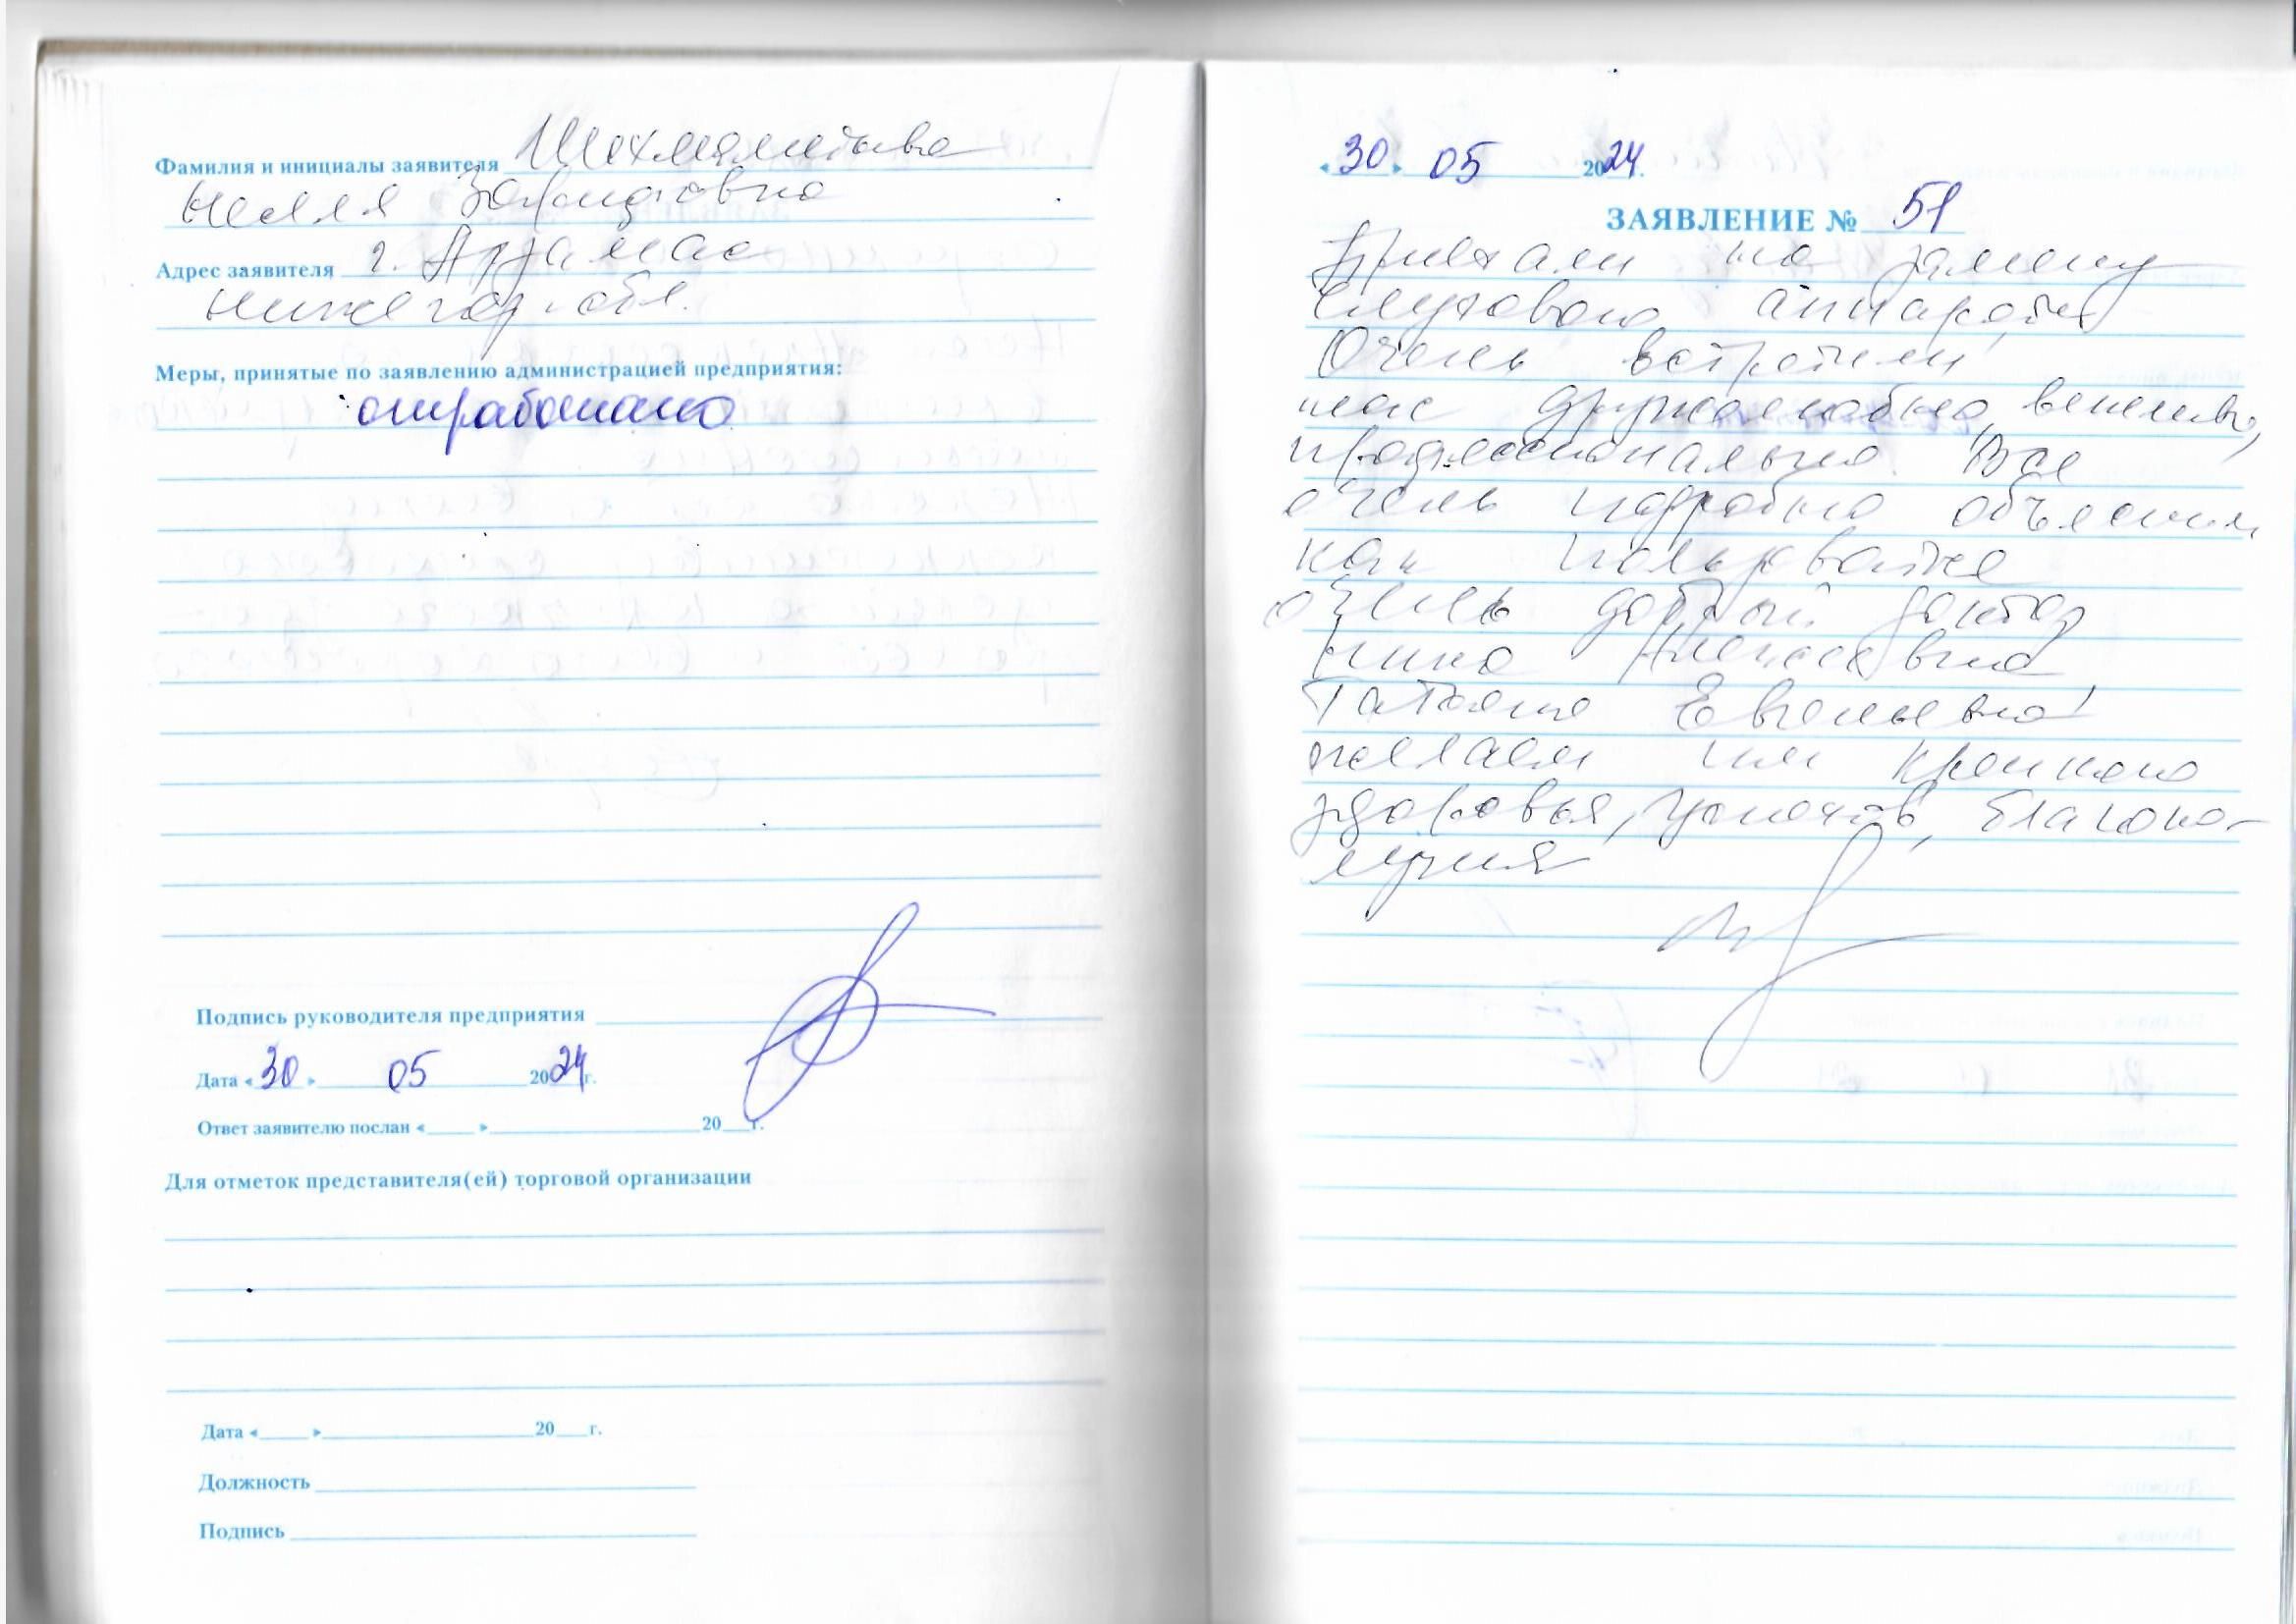 Фамилия и инициалы заявителя
Нелля
Адрес заявителя г. Арзамас
Нижегор. обл.
Меры, принятые по заявлению администрацией предприятия:
отработано
Подпись руководителя предприятия
Дата «30» 05 2024г.
Ответ заявителю послан « » 20 г.
Для отметок представителя(ей) торговой организации
Дата « » 20 г.
Должность
Подпись
«30» 05 2024г.
ЗАЯВЛЕНИЕ № 51
Приехали на замену
слухового аппарата
Очень встретили
нас дружелюбно,
профессионально. Все
очень подробно объяснили
как
очень добрый доктор
Нина Алексеевна
Татьяна Евгеньевна!
желаем им крепкого
здоровья, успехов, благопо-
лучия